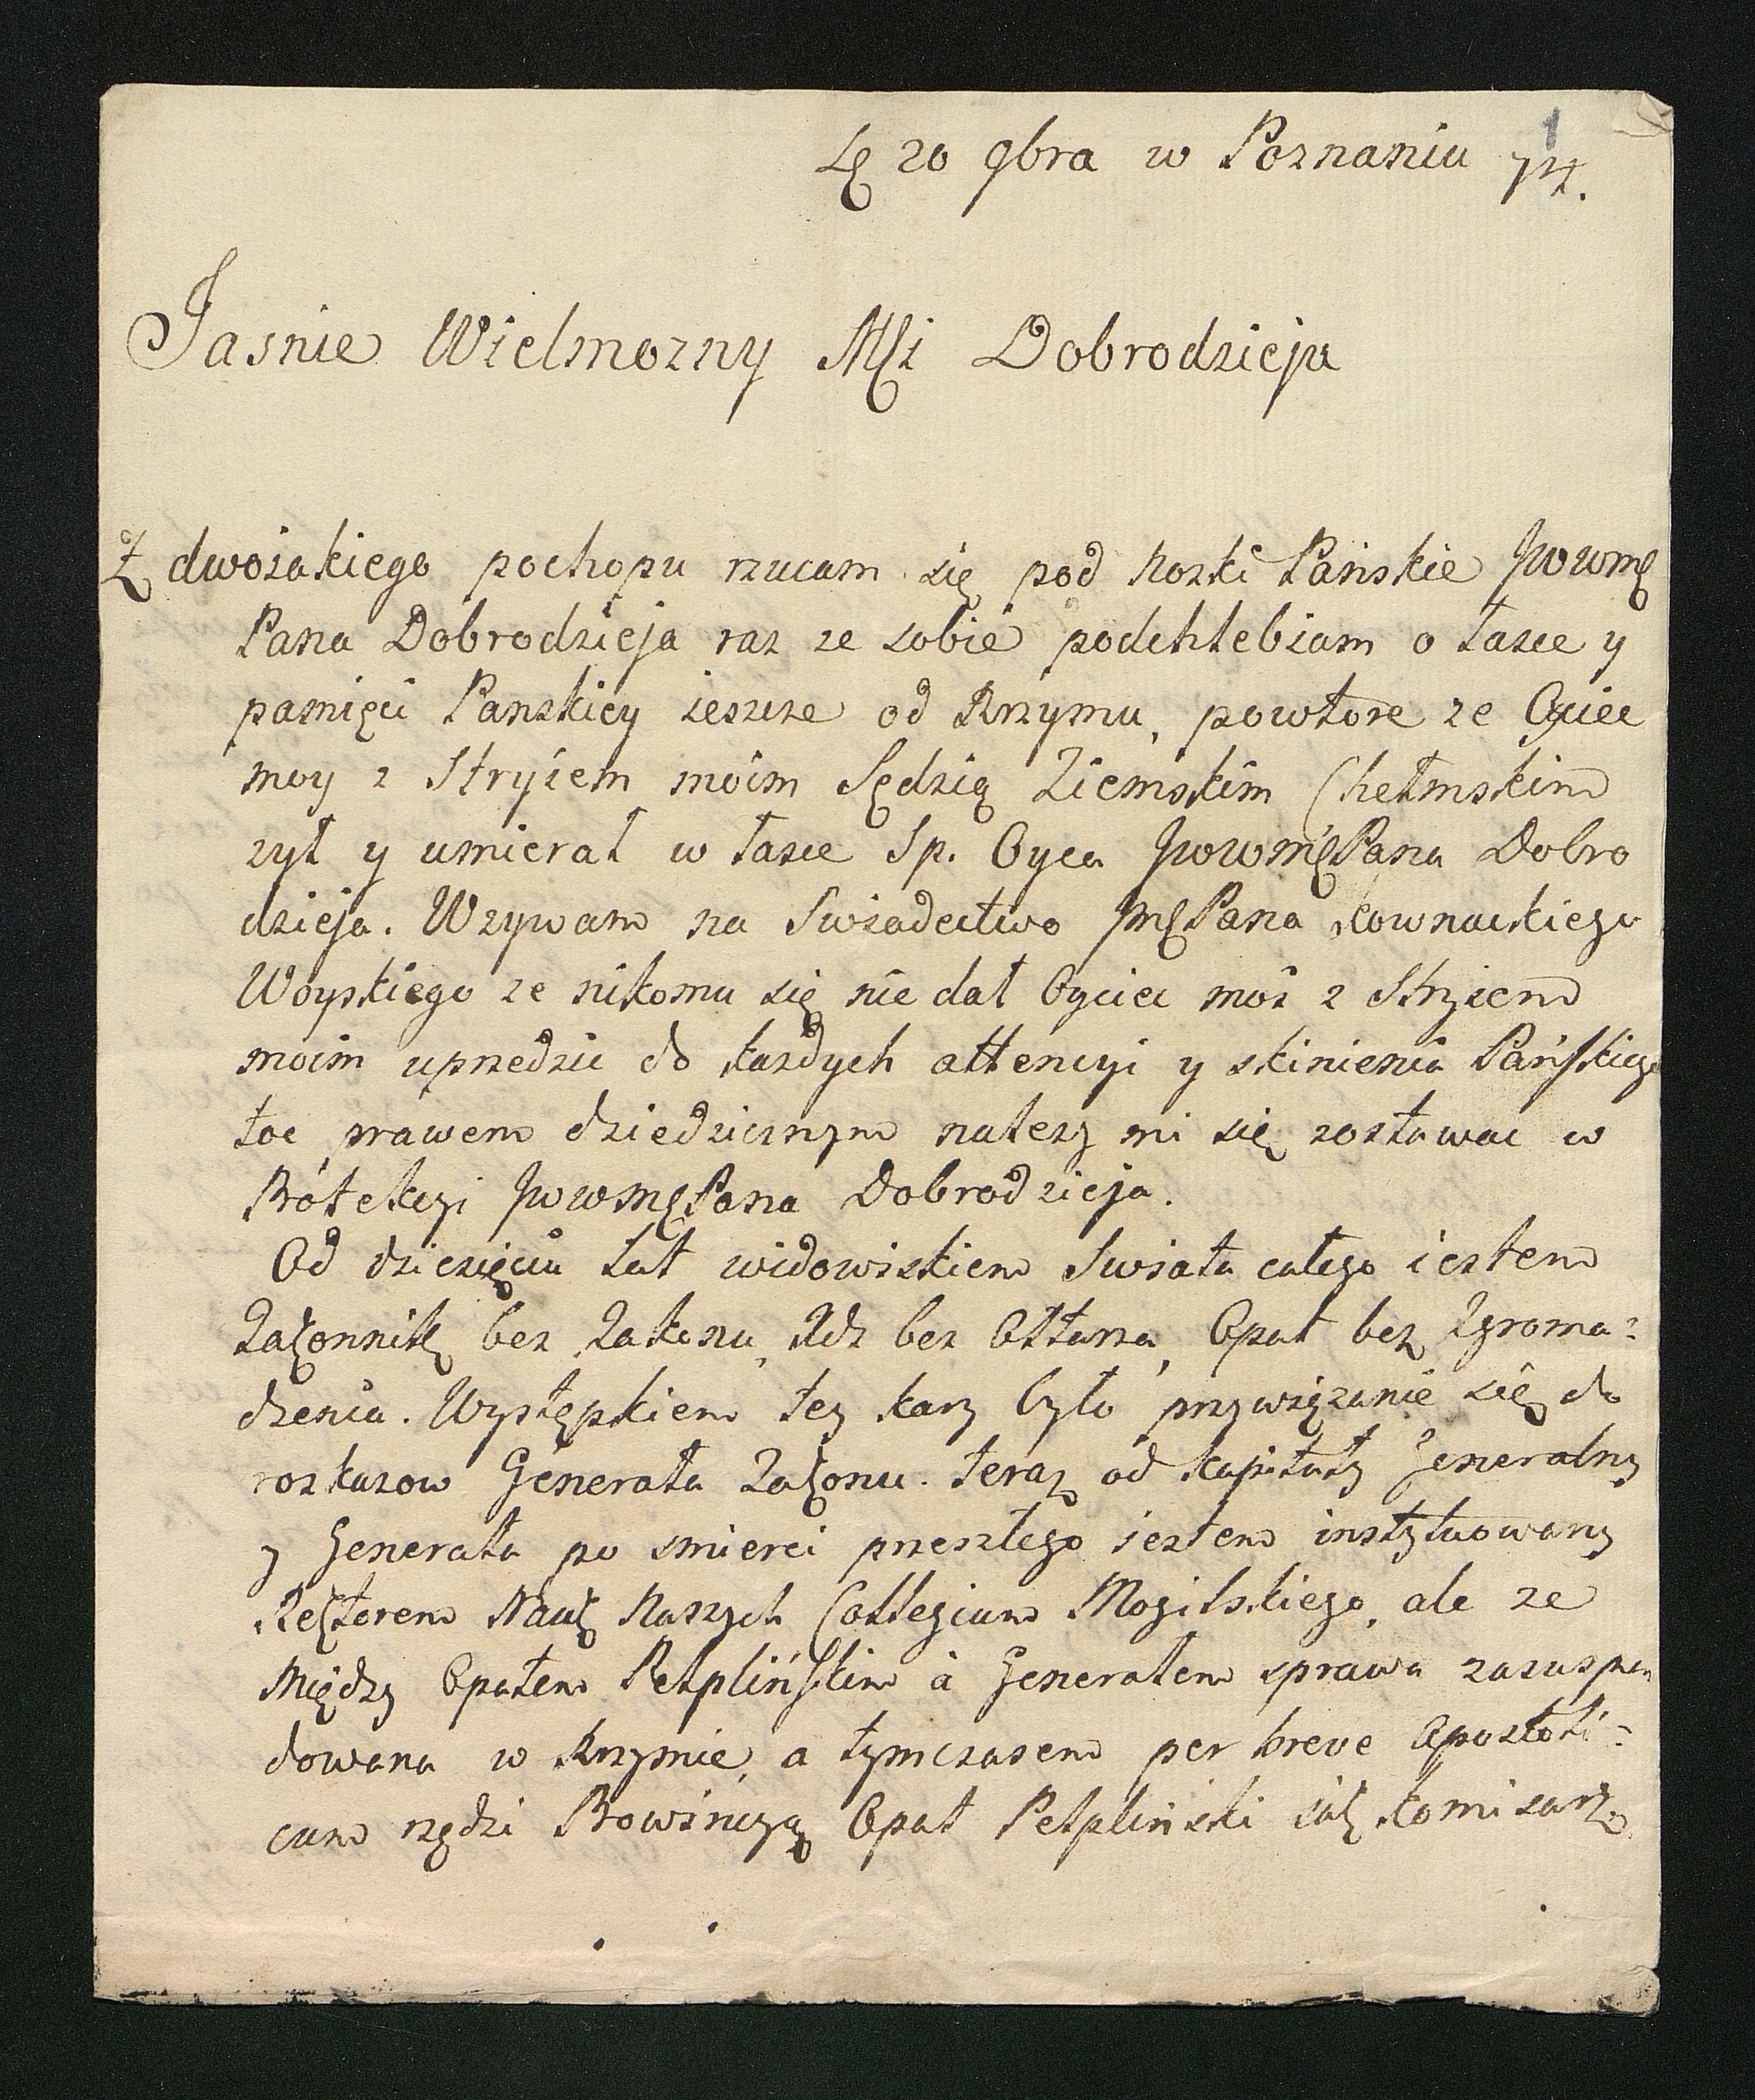 1
20 9bra w Poznaniu 74.
Jasnie Wielmozny Mſi Dobrodzieju
Z dwoiakiego pochopu rzucam się pod Nozki Pańskie Jwwmę
Pana Dobrodzieja raz ze sobie podchlebiam o łasce y
pamięci Panskiey ieszcze od Rzymu, powtore ze Ociec
moy z Stryiem moim Sędzią Ziemskim Chełmskim
zył y umierał w łasce Sp. Oyca JwwmęPana Dobro
dzieja. Wzywam na Swiadectwo JmęPana Kownackiego
Woyskiego ze nikomu się nie dał Oyciec moi z Stryiem
moim uprzedzic do kazdych attencyi y skinienia Pańſkiego
toc prawem dziedzicznym nalezy mi się zostawac w
Protekcyi JwwmęPana Dobrodzieja.
Od dziesięciu Lat widowiskiem Swiata całego iestem
Zakonnik bez Zakonu, Xdz bez Ołtarza, Opat bez Zgroma:
dzenia. Występkiem tey kary było przywiązanie się do
roskazow Generała Zakonu. teraz od kapituły Generalny
y Generała po smierci przeszłego iestem instytuowany
Rektorem Nauk Naszych Collegium Mogilskiego, ale ze
Między Opatem Pelplińſkim à Generałem sprawa zasuspen
dowana w Rzymie, a tymczasem per breve Apostoli:
cum rządzi Prowincyą Opat Pelpliński iak komisarz